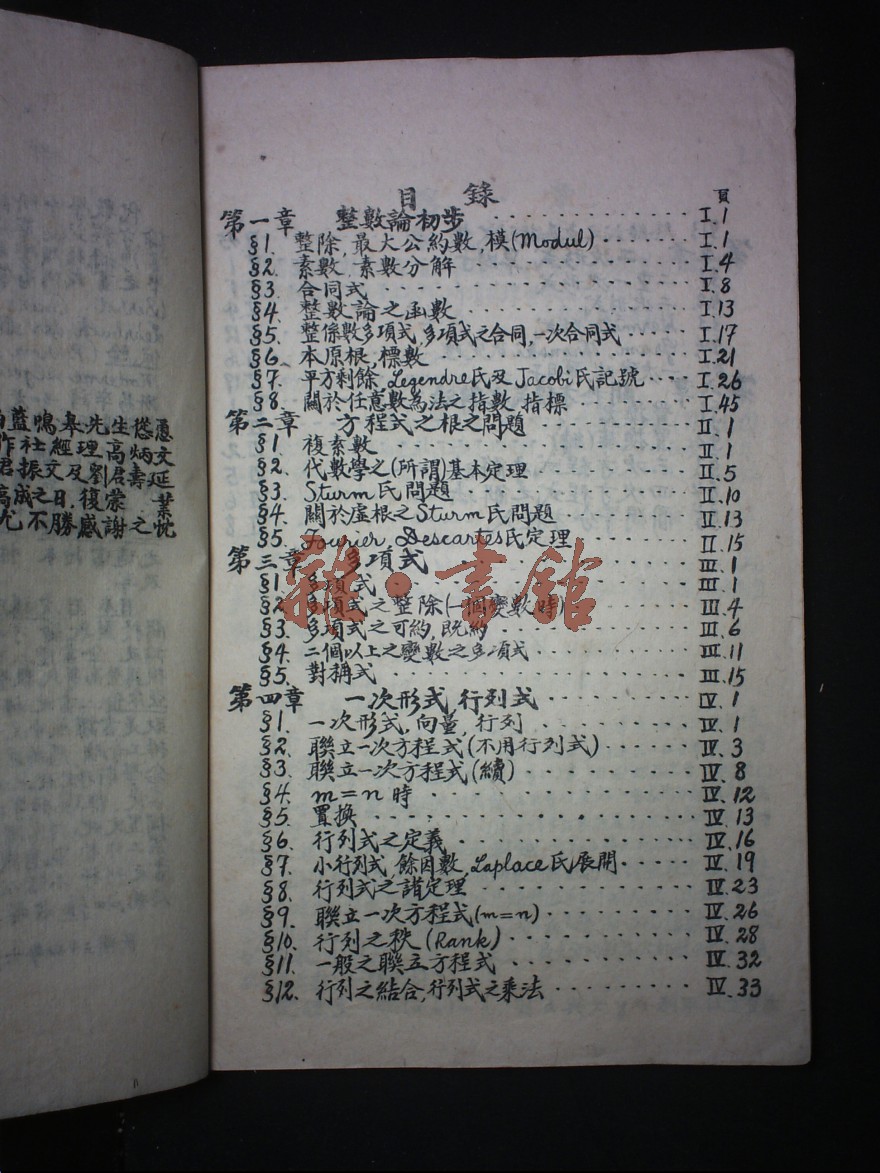 目 錄
頁
第一章 整數論初步 I.1
§1. 整除,最大公約數,模(Modul) I.1
§2. 素數,素數分解 I.4
§3. 合同式 I.8
§4. 整數論之函數 I.13
§5. 整係數多項式,多項式之合同,一次合同式 I.17
§6. 本原根,標數 I.21
§7. 平方剩餘,Legendre氏及Jacobi氏記號 I.26
§8. 關於任意數為法之指數,指標 I.45
第二章 方程式之根之問題 II.1
§1. 複素數 II.1
§2. 代數學之(所謂)基本定理 II.5
§3. Sturm氏問題 II.10
§4. 關於虛根之Sturm氏問題 II.13
§5. Fourier, Descartes氏定理 II.15
第三章 多項式 III.1
§1. 多項式 III.1
§2. 多項式之整除(一個變數時) III.4
§3. 多項式之可約,既約 III.6
§4. 二個以上之變數之多項式 III.11
§5. 對稱式 III.15
第四章 一次形式,行列式 IV.1
§1. 一次形式,向量,行列 IV.1
§2. 聯立一次方程式(不用行列式) IV.3
§3. 聯立一次方程式(續) IV.8
§4. m=n時 IV.12
§5. 置換 IV.13
§6. 行列式之定義 IV.16
§7. 小行列式,餘因數,Laplace氏展開 IV.19
§8. 行列式之諸定理 IV.23
§9. 聯立一次方程式(m=n) IV.26
§10. 行列之秩(Rank) IV.28
§11. 一般之聯立方程式 IV.32
§12. 行列之結合,行列式之乘法 IV.33
藍鳴皋先生慫恿
作社經理高炳文
君振文及劉君壽延
成之日,復蒙 業
尤不勝感謝之忱
雜·書館